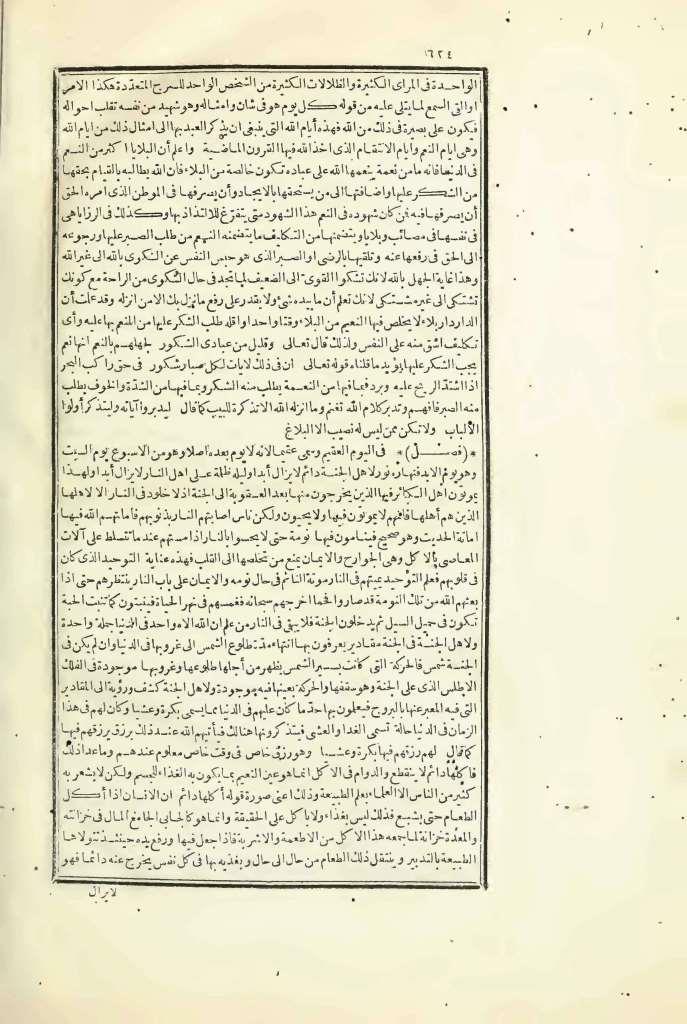 ٦٢٤
الواحدة في المراى الكثيرة والظلالات الكثيرة من الشخص الواحد للسرج المتعددة هكذا الامر
اوالقى السمع لما يتلى عليه من قوله كل يوم هو في شان وامثاله وهو شهيد من نفسه تقلب احواله
فيكون على بصيرة في ذلك من الله فهذه أيام الله التي ينبغي ان يذكر العبد بها الى امثال ذلك من ايام الله
وهي ايام النعم وأيام الانتقام الذي اخذ الله فيها القرون الماضية واعلم أن البلايا اكثر من النعم
في الدنيا فانه ما من نعمة ينعمها الله على عباده تكون خالصة من البلاء فان الله يطالبه بالقيام بحقها
من الشكر عليها واضافتها الى من يستحقها بالايجاد وأن يصرفها في الموطن الذي أمره الحق
أن يصرفها فيه فمن كان شهوده في النعم هذا الشهود متى يتفرغ للالتذاذ بها وكذلك في الرزايا هي
في نفسها في مصائب وبلايا ويتضمنها من التكليف ما يتضمنه النعيم من طلب الصبر عليها ورجوعه
الى الحق في رفعها عنه وتلقيها بالرضى او الصبر الذي هو حبس النفس عن الشكوى بالله الى غير الله
وهذا غاية الجهل بالله لانك تشكو القوى الى الضعيف لما تجد في حال الشكوى من الراحة مع كونك
تشتكى الى غير مشتكى لانك تعلم أن ما بيده شيء ولا يقدر على رفع ما نزل بك الامن انزله وقد علمت أن
الدار دار بلاء لا يخلص فيها النعيم من البلاء وقتا واحدا واقله طلب الشكر عليها من المنعم بها عليه وأي
تكليف اشق منه على النفس ولذلك قال تعالى وقليل من عبادى الشكور لجهلهم بالنعم انها نعم
يجب الشكر عليها يؤيد ما قلناه قوله تعالى ان في ذلك لايات لكل صبار شكور في حق راكب البحر
اذا اشتد الريح عليه وبرد فبما فيها من النعمة يطلب منه الشكر وبما فيها من الشدة والخوف يطلب
منه الصبر فافهم وتدبر كلام الله تغنم وما انزله الله الا تذكرة للبيب كما قال ليدبروا آياته وليتذكر أولوا
الألباب ولا تكن ممن ليس له نصيب الا البلاغ
* (فصـــل) * في اليوم العقيم وسمى عقيما لانه لا يوم بعده اصلا وهو من الاسبوع يوم السبت
وهو يوم الابد فنهاره نور لاهل الجنة دائم لا يزال أبدا وليله ظلمة على اهل النار لا يزال أبدا ولهذا
يموتون اهل الكبائر فيها الذين يخرجون منها بعد العقوبة الى الجنة اذ لا خلود في النار الا لاهلها
الذين هم أهلها فانهم لا يموتون فيها ولا يحيون ولكن ناس اصابتهم النار بذنوبهم فاماتهم الله فيها
اماتة الحديث وهو صحيح فينامون فيها نومة حتى لا يحسوا بالنار اذا مستهم عندما تتسلط على آلات
المعاصى بالاكل وهي الجوارح والايمان يمنع من تخلصها الى القلب فهذه عناية التوحيد الذي كان
في قلوبهم فعلم التوحيد يميتهم في النار موتة النائم في حال نومه والايمان على باب النار ينتظرهم حتى اذا
بعثهم الله من تلك النومة قد صاروا فحما اخرجهم سبحانه فغمسهم في نهر الحياة فينبتون كما تنبت الحبة
تكون في حميل السيل ثم يدخلون الجنة فلا يبقى في النار من علم ان الله الاه واحد في الدنيا جملة واحدة
ولاهل الجنة في الجنة مقادير يعرفون بها انتهاء مدة طلوع الشمس الى غروبها في الدنيا وان لم يكن في
الجنة شمس فالحركة التي كانت بسير الشمس يظهر من أجلها طلوعها وغروبها موجودة في الفلك
الاطلس الذي على الجنة وهو سقفها والحركة بعينها فيه موجودة ولاهل الجنة كشف ورؤية الى المقادير
التي فيه المعبر عنها بالبروج فيعلمون بها حد ما كان عليهم في الدنيا مما يسمى بكرة وعشيا وكان لهم في هذا
الزمان في الدنيا حالة تسمى الغدا والعشى فيتذكرونها هنالك فيأتيهم الله عند ذلك برزق يرزقهم فيها
كما قال لهم رزقهم فيها بكرة وعشيا وهو رزق خاص في وقت خاص معلوم عندهم وما عدا ذلك
فاكلها دائم لا ينقطع والدوام في الاكل انما هو عين النعيم بما يكون به الغذاء للجسم ولكن لا يشعر به
كثير من الناس الا العلماء بعلم الطبيعة وذلك اعنى صورة قوله أكلها دائم ان الانسان اذا أكل
الطعام حتى يشبع فذلك ليس بغذاء ولا باكل على الحقيقة وانما هو كالجابى الجامع المال في خزانته
والمعدة خزانة لما جمعه هذا الاكل من الاطعمة والاشربة فاذا جعل فيها ورفع يده حينئذ تتولاها
الطبيعة بالتدبير وينتقل ذلك الطعام من حال الى حال ويغذيه بها في كل نفس يخرج عنه دائما فهو
لا يزال